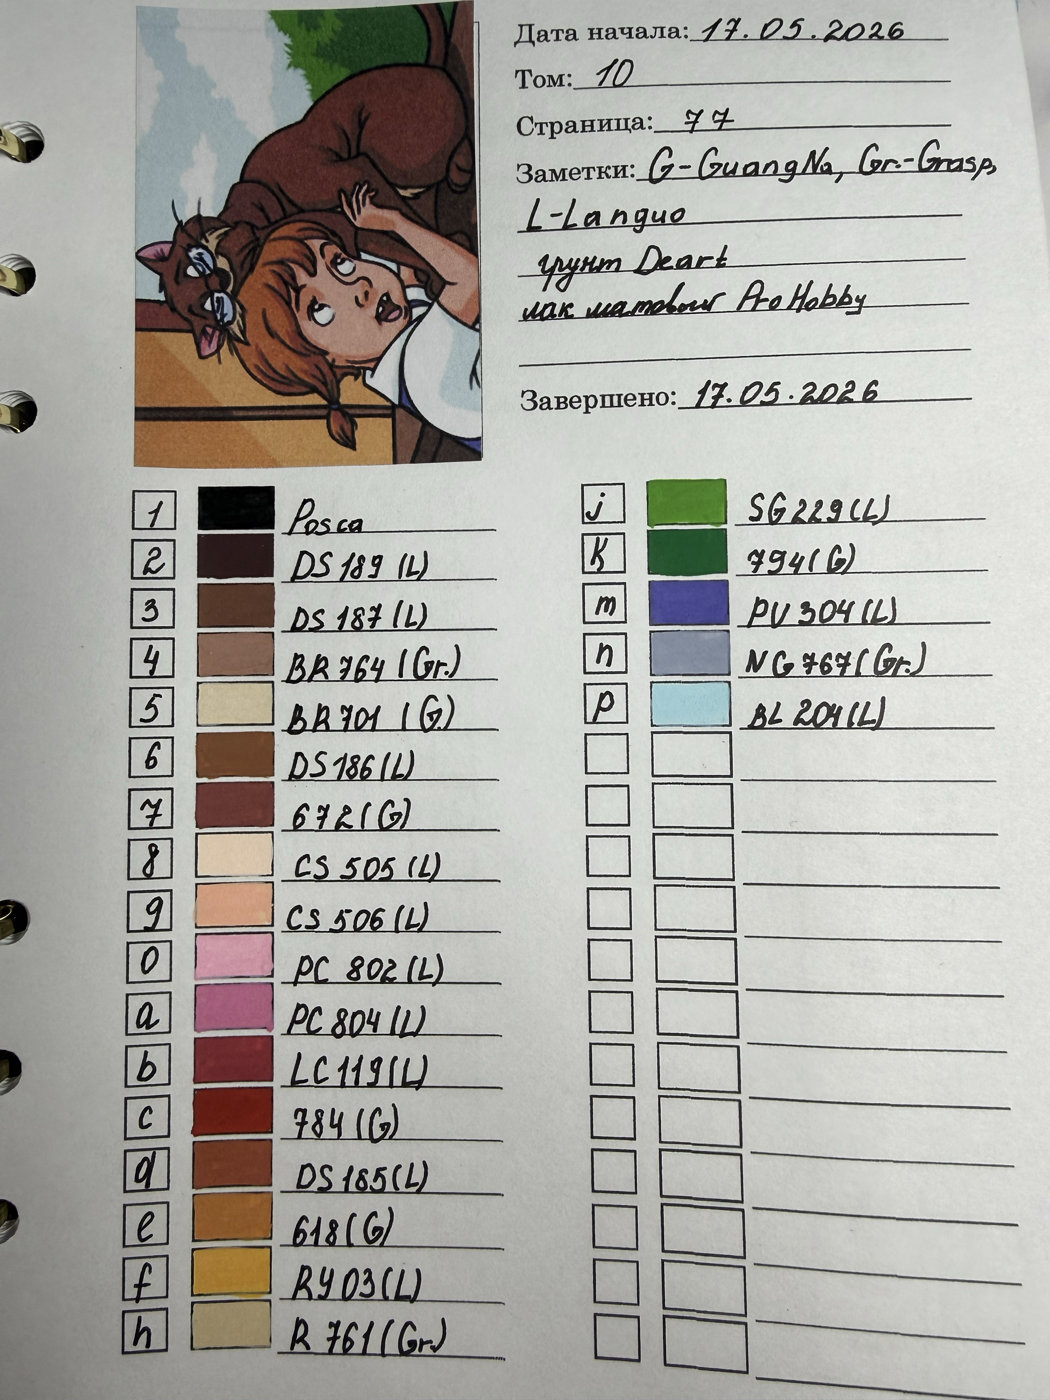 Дата начала: 17.05.2026
Том: 10
Страница: 77
Заметки: G-GuangNa, Gr.-Grasp,
L-Languo
грунт Deart
лак матовый ProHobby
Завершено: 17.05.2026
1 Posca
2 DS 189 (L)
3 DS 187 (L)
4 BR 764 (Gr.)
5 BR 701 (G)
6 DS 186 (L)
7 672 (G)
8 CS 505 (L)
9 CS 506 (L)
0 PC 802 (L)
a PC 804 (L)
b LC 119 (L)
c 784 (G)
d DS 185 (L)
e 618 (G)
f RY 03 (L)
h R 761 (Gr.)
j SG 229 (L)
k 794 (G)
m PV 304 (L)
n NG 767 (Gr.)
p BL 204 (L)